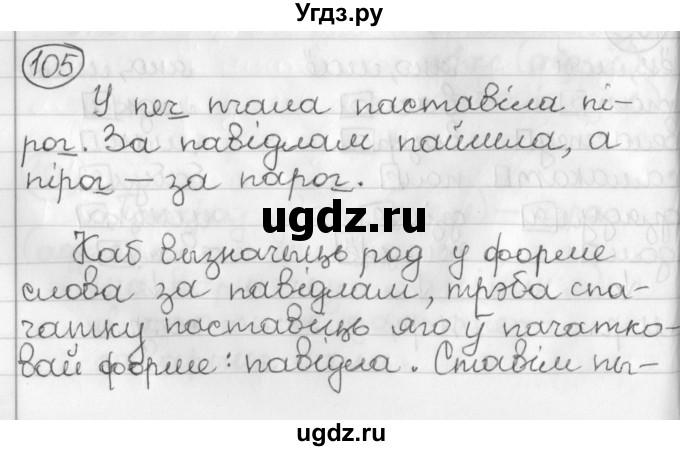 Угдз.ру
105
У печ пчала паставіла пі-
рог. За павідлам пайшла, а
пірог — за парог.
ugdz.ru
Каб вызначыць род у форме
слова за павідлам, трэба спа-
чатку паставіць яго ў пачатко-
вай форме: павідла. Ставім пы-
ugdz.ru